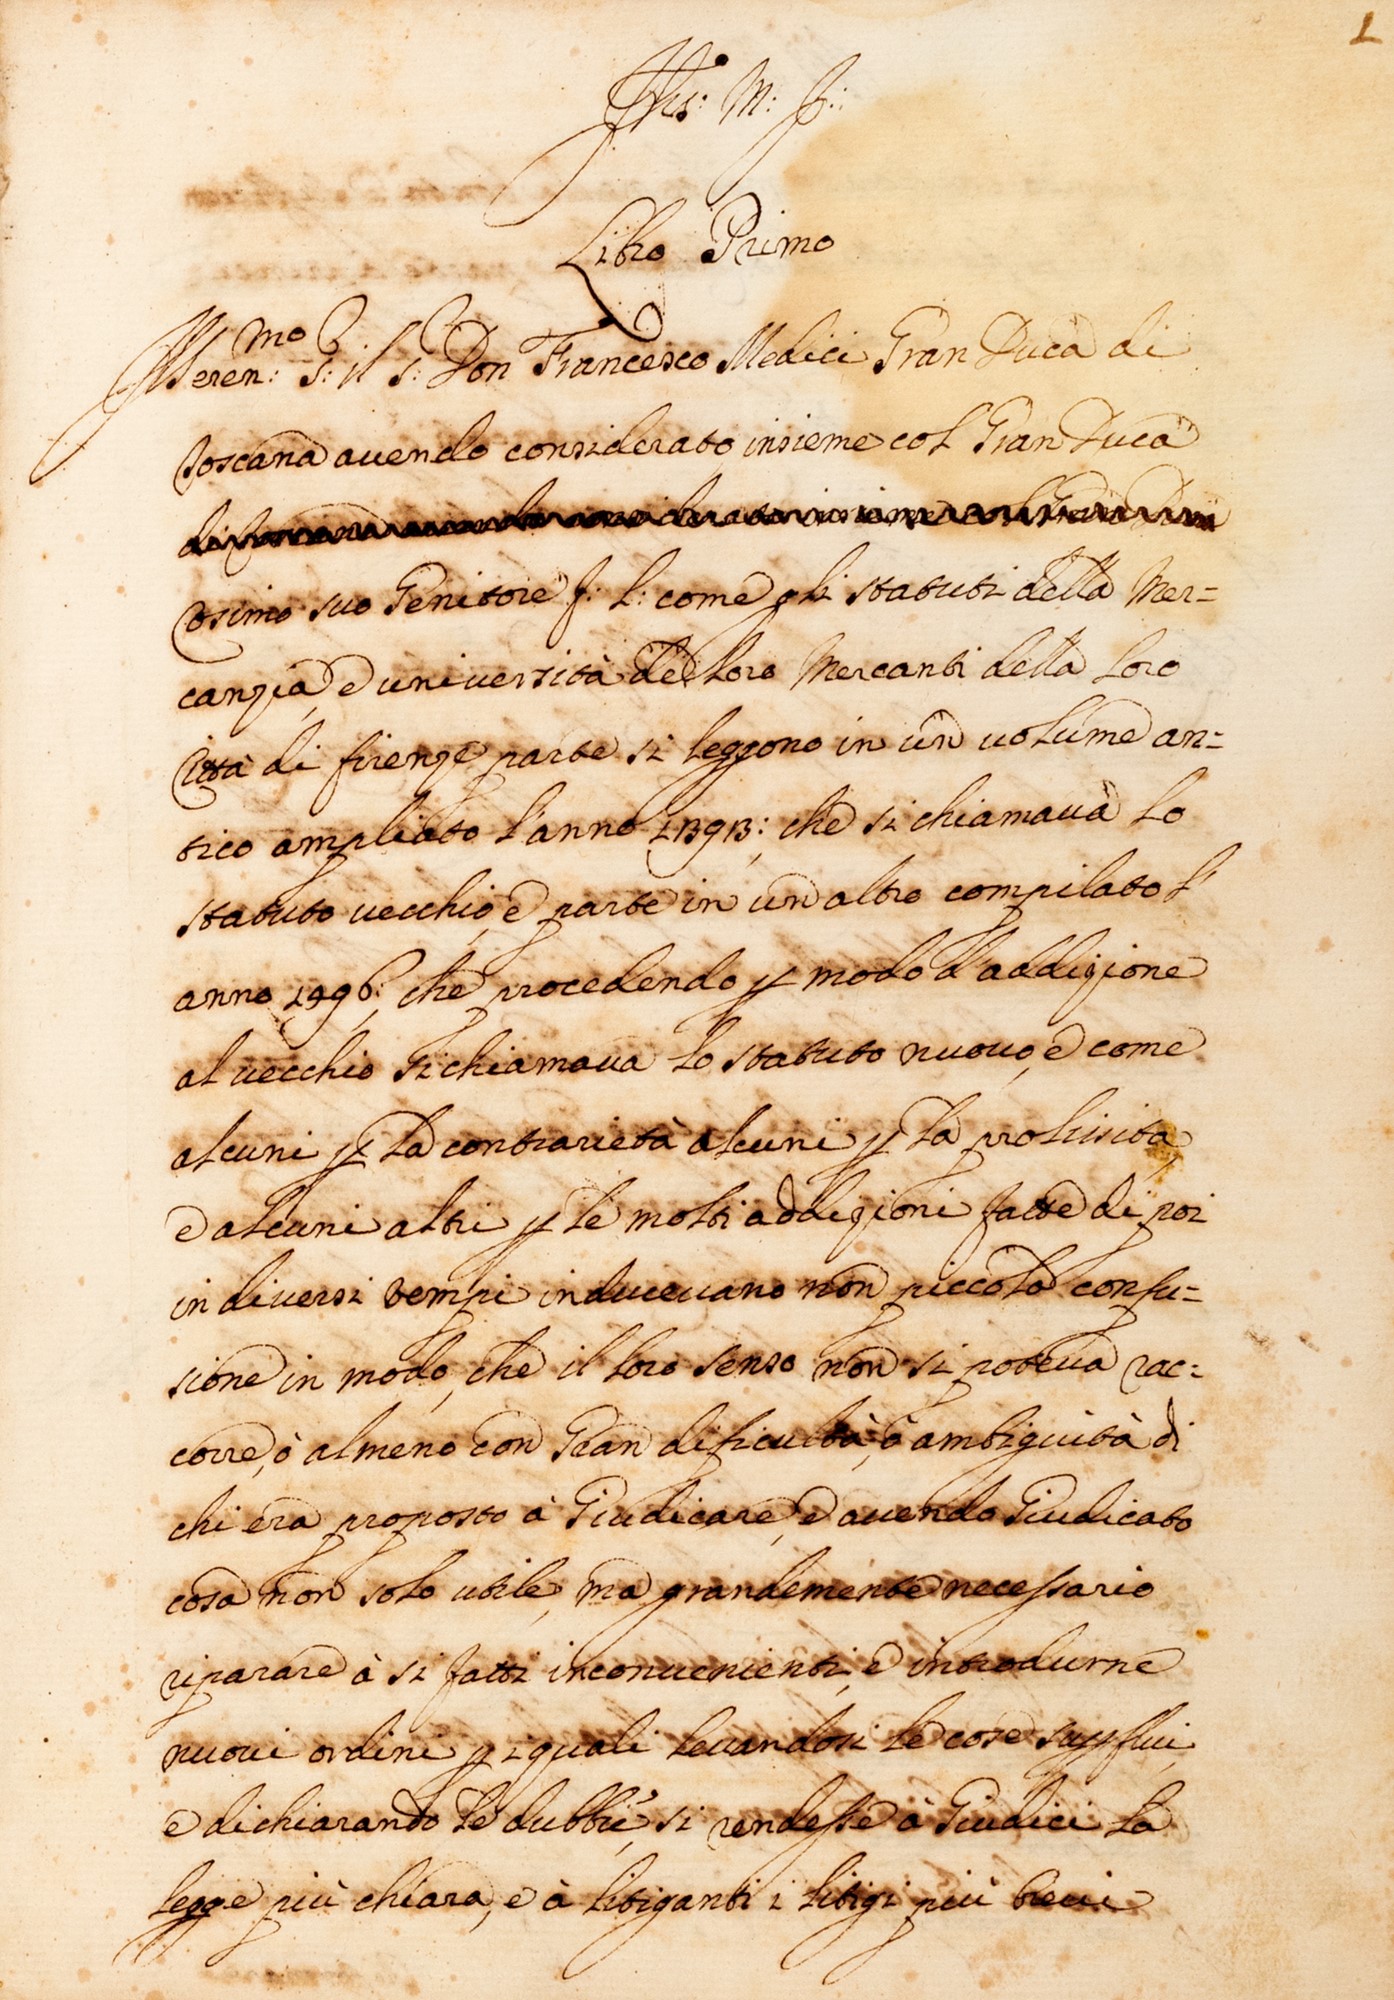 1
Jhs: M: J:
Libro Primo
Il Seren:mo S: il S: Don Francesco Medici Gran Duca di
Toscana auendo considerato insieme col Gran Duca
di Toscana auendo considerato insieme col Gran Duca
Cosimo suo Genitore f: l: come gli statuti della Mer=
canzia, e università de loro Mercanti della loro
Città di firenze parte si leggono in un uolume an=
tico ampliato l'anno 1393: che si chiamaua lo
statuto uecchio, e parte in un altro compilato l'
anno 1496: che procedendo p modo d'addizione
al uecchio si chiamaua lo statuto nuouo, e come
alcuni p la contrarietà alcuni p la prolissita,
e alcuni altri p le molti addizioni fatte di poi
in diuersi tempi inducevano non piccola confu=
sione in modo, che il loro senso non si poteua rac=
corre, ò almeno con Gran dificultà, ò ambiguità di
chi era proposto à Giudicare, e auendo Giudicato
cosa non solo utile, ma grandemente necessario
riparare à si fatti inconuenienti, e introdurne
nuoui ordini p i quali leuandosi le cose supflui,
e dichiarando le dubbie, si rendesse à Giudici la
legge più chiara, e à litiganti i litigi più breui